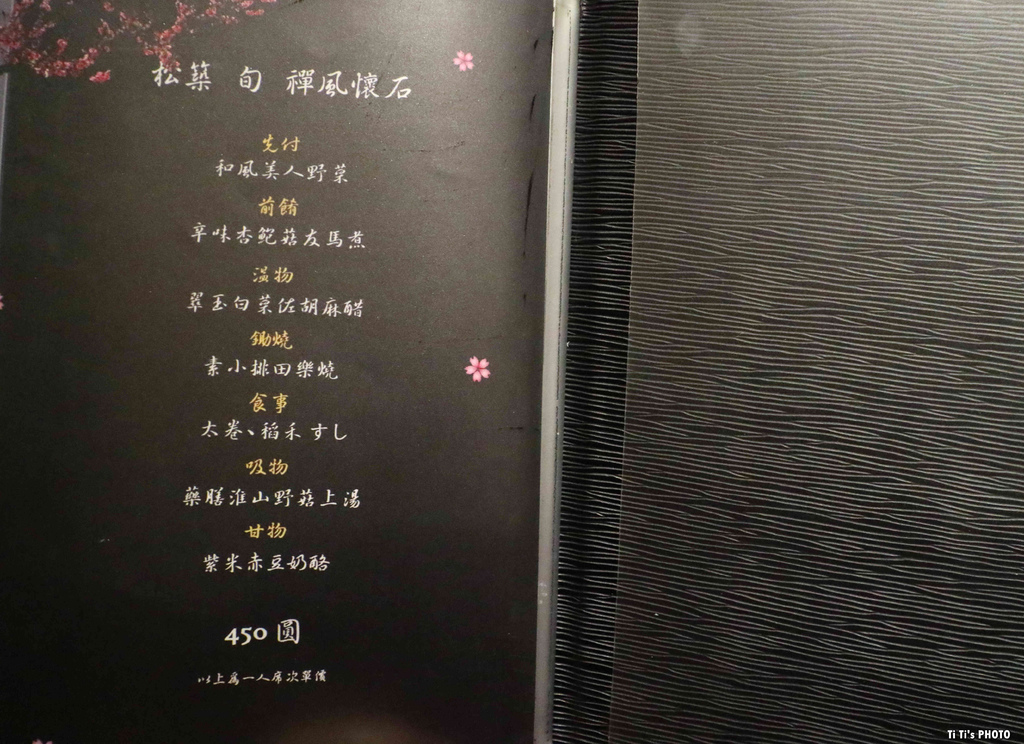 松築 旬 禪風懷石
先付
和風美人野菜
前餚
辛味杏鮑菇友馬煮
溫物
翠玉白菜佐胡麻醋
鋤燒
素小排田樂燒
食事
太卷、稻禾すし
吸物
藥膳淮山野菇上湯
甘物
紫米赤豆奶酪
450 圓
以上為一人席次單價
Ti Ti's PHOTO